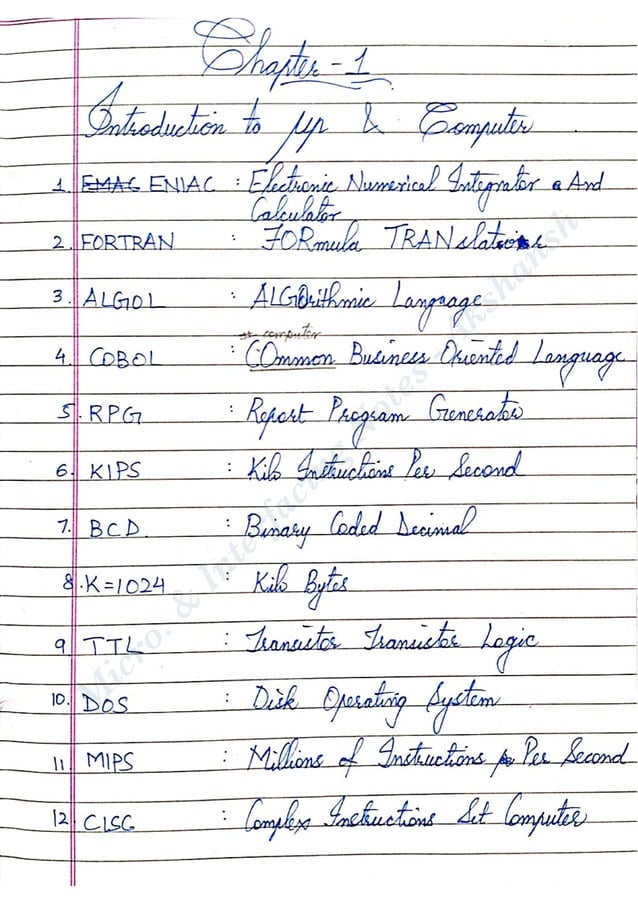 Chapter - 1
Introduction to μp & Computer
1. EMAG ENIAC : Electronic Numerical Integrator a And
Calculator
2. FORTRAN : FORmula TRANslator
3. ALGOL : ALGOrithmic Language
computer
4. COBOL : COmmon Business Oriented Language
5. RPG : Report Program Generator
6. KIPS : Kilo Instructions Per Second
7. BCD : Binary Coded Decimal
8. K=1024 : Kilo Bytes
9 TTL : Transistor Transistor Logic
10. DOS : Disk Operating System
11 MIPS : Millions of Instructions p Per Second
12. CISC : Complex Instructions Set Computer
Micro. & Interfacing Notes Akshansh